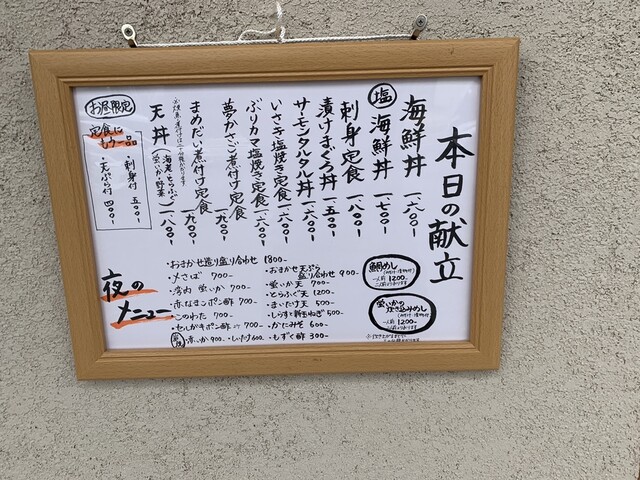 本日の献立
海鮮丼 一六〇〇-
塩 海鮮丼 一七〇〇-
刺身定食 一八〇〇-
漬けまぐろ丼 一五〇〇-
サーモンタルタル丼 一六〇〇-
いさき塩焼き定食 一六〇〇-
ぶりカマ塩焼き定食 一六〇〇-
夢かさご煮付け定食 一九〇〇-
まめだい煮付け定食 一九〇〇-
天丼(海老・とらふぐ 蛍いか・野菜) 一八〇〇-
お昼限定
定食にもう一品
・刺身付 五〇〇-
・天ぷら付 四〇〇-
夜のメニュー
・おまかせ造り盛り合わせ 1800-
・〆さば 700-
・蛍いか 700-
・赤なまこポン酢 700-
・このわた 700-
・セルガキポン酢 700-
・赤いか 900- ・しいたけ 600-
・おまかせ天ぷら盛り合わせ 900-
・蛍いか天 700-
・とらふぐ天 1200-
・まいたけ天 500-
・しらすと新玉ねぎ 500-
・かにみそ 600-
・もずく酢 300-
鯛めし
一人前 1200-
蛍いかの炊き込みめし
一人前 1200-